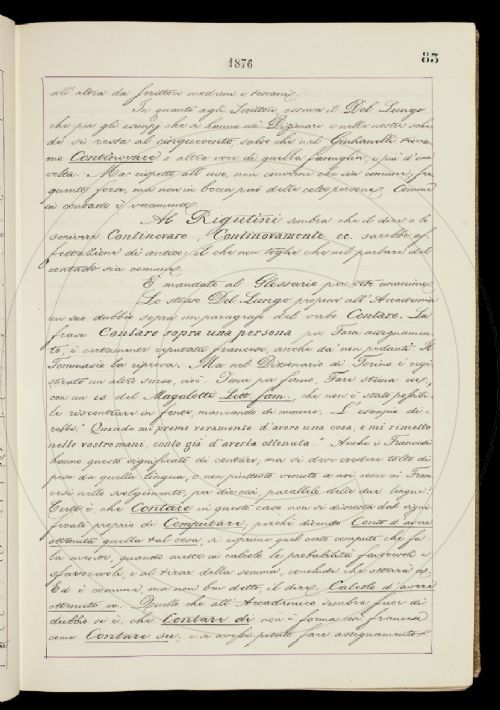 1876
83
all'altra da scrittori moderni e toscani.
In quanto agli Scrittori, osserva il Del Lungo
che per gli esempj che si hanno nei Dizionari e nelle nostre schede
si resta al cinquecento, salvo che nel Giuliani
Continovare e altre voci di quella famiglia, e più d'una
volta. Ma rispetto all'uso, non converrà che sia comune
in bocca però delle colte persone. Comune
in contado è veramente.
Al Rigutini sembra che il dire o lo
scrivere Continovare, Continovamente ec. sarebbe af-
fettazione di antico, il che non toglie che nel parlare del
contado sia comune.
È mandato al Glossario per voto unanime.
Lo stesso Del Lungo propone all'Accademia
un suo dubbio sopra un paragrafo del verbo Contare. La
frase Contare sopra una persona per Farci assegnamen-
to, è certamente reputata francese, anche da' non pedanti. Il
Tommaséo la riprova. Ma nel Dizionario di Torino è regi-
strato un altro senso, cioè, Tener per fermo, Fare stima ec.,
con un es. del Magalotti Lett. fam., che non è stato possibi-
le riscontrare in fonte, mancando di numero. L'esempio di-
rebbe: "Quando mi preme veramente d'avere una cosa, e mi rimetto
nelle vostre mani, conto già d'averla ottenuta." Anche i Francesi
hanno questo significato di contare, ma si deve credere tolto di
peso da quella lingua, e non piuttosto venuto a noi come ai Fran-
cesi nello svolgimento, per dir così, parallelo delle due lingue?
Certo è che Contare in questo caso non si discosta dal signi-
ficato proprio di Computare, perchè dicendo Conto d'avere
ottenuta quella tal cosa, si esprime quel certo computo che fa
la mente, quando mette in calcolo le probabilità favorevoli e
sfavorevoli, e al tirar della somma, conclude che otterrà ec.
Ed è comune, ma non ben detto, il dire, Calcolo d'avere
ottenuto ec. Quello che all'Accademico sembra fuor di
dubbio si è, che Contare di non è forma così francese
come Contare su, e si avrebbe potuto fare assegnamento